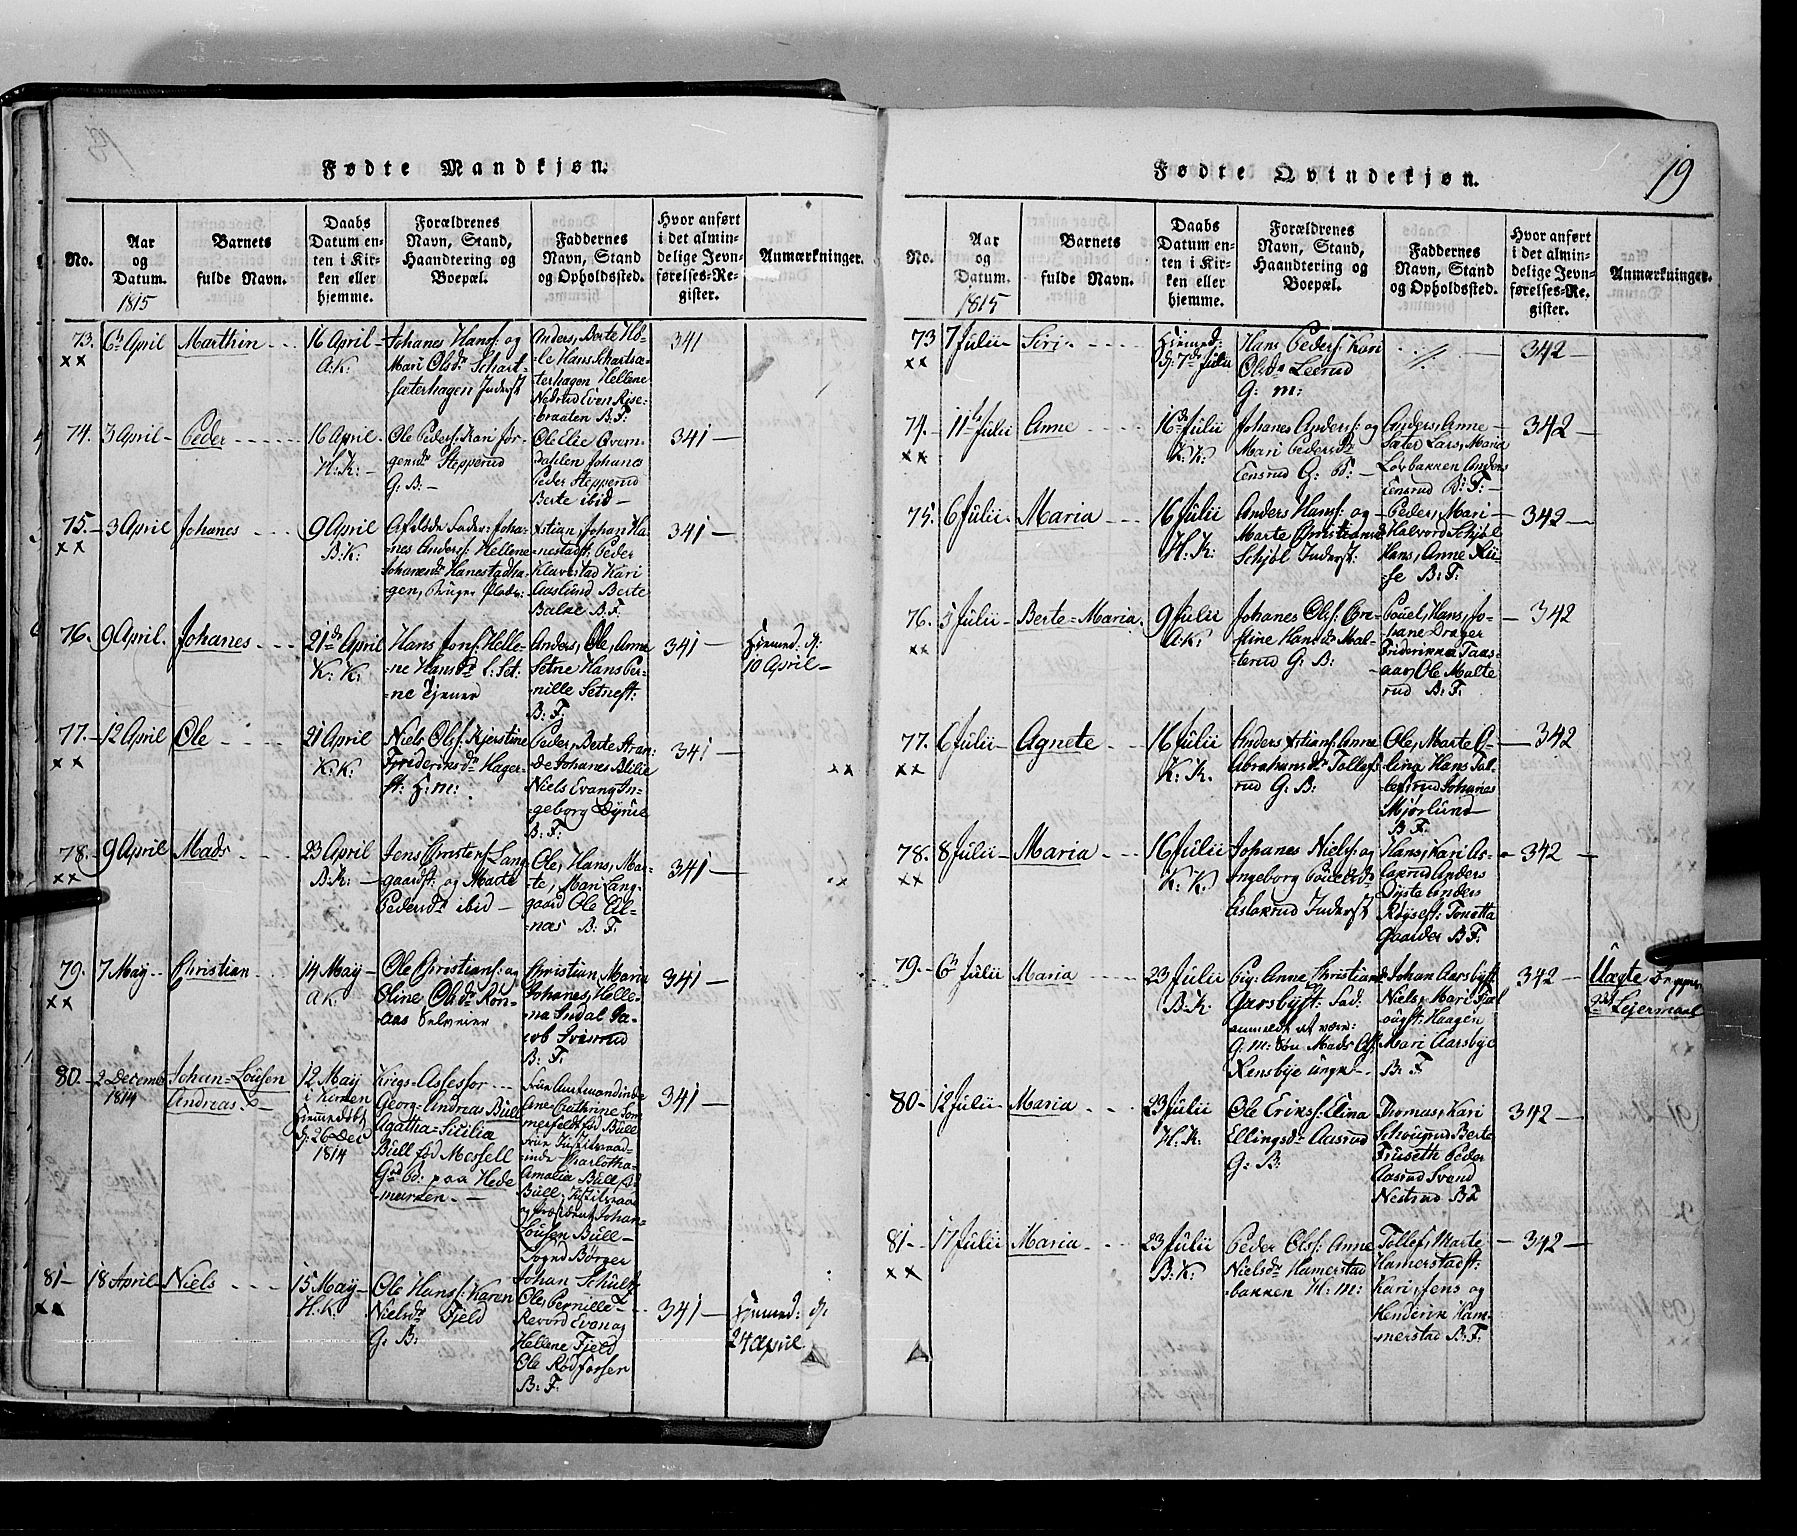 Fødte Mandkjøn.
No.
Aar
og
Datum.
1815
Barnets
fulde Navn.
Daabs
Datum en-
ten i Kir-
ken eller
hjemme.
Forældrenes
Navn, Stand,
Haandtering og
Boepæl.
Faddernes
Navn, Stand
og Opholdssted.
Hvor anført
i det almin-
delige Jevn-
førelses-Re-
gister.
Anmærkninger.
73.
xx
6te April
Marthin
16 April
A.K:
Johanes Hans: og
Mari Olsdr Schart-
sæterhagen Inderst
Anders, Berte Ho-
le Hans Schartsæ-
terhagen Hellene
Nedrud Even Rise-
braaten B.F.
341
74.
3 April
Peder
16 April
H:K:
Ole Peders: Kari Jør-
gensdr Stepperud
G: B:
Ole Lie Oven-
dahlen Johanes
Peder Stepperud
Berte ibid
341
75.
xx
3 April
Johanes
9 April
B:K:
Afdøde Fader: Joha-
nes Anders: Hellene
Johanesdr Hanestadha-
gen,
Xstian, Johan Ha-
nestad: Peder
Klavestad Kari
Aaslund Berte
Balke B.F.
341
76.
9 April.
Johanes
21de April
K:K:
Hans Jons: Helle-
ne Hansdr l: Set-
ne Tjener
Anders, Ole, Anne
Setne Hans Per-
nille Setneft:
B: F.
341
Hjemmed: d:
10 April
77.
xx
12 April
Ole
21 April
K:K:
Niels Ols: Kjerstine
Frideriksdr Hager-
ft: H: m:
Peder, Berte Stran-
de Johanes Blilie
Niels Evang In-
geborg Dyrud
B: F:
341
xx
78.
xx
9 April
Mads
23 April
B:K:
Jens Christens: Lang-
gaardft: og Marte
Pedersdr ibid
Ole, Hans, Mar-
te, Mari Lang-
gaard Ole Al-
næs B: F:
341
xx
79.
xx
7 May
Christian
14 May
A K:
Ole Christians: og
Oline Olsdr Kor-
aas Selveier
Christian, Maria
Johanes, Helle-
na Indal Ja-
cob Svisrud
B: F.
341
80.
2 Decemb
1814
Johan=Lousen
Andreas
12 May
i Kirken
Hjemmedøbt
d: 26 Dec
1814
Krigs-Assessor
Georg=Andreas Bull
Agatha=Sicilia
Bull fød Messell
Gd Bd: paa Hede
marken.
Frue Amtmandinde
Ane Cathrine Som
merfeldt fød Bull
Frue Justitsraad-
inde Charlotha=
Amalia Bull fød
Bull, Justitsraad
og Præsident Johan=
Lousen Bull
Sogned Børger
Johan Schult
341
81
xx
18 April
Niels
15 May
H.K:
Ole Hans: Karen
Nielsdr Fjeld
G: B:
Ole, Pernille
Revord Evan og
Hellene Fjeld
Ole Rødfossen
B: F:
341
Hjemmed: d:
24 April
Fødte Qvindekjøn.
19
No.
Aar
og
Datum.
1815
Barnets
fulde Navn.
Daabs
Datum en-
ten i Kir-
ken eller
hjemme.
Forældrenes
Navn, Stand,
Haandtering og
Boepæl.
Faddernes
Navn, Stand
og Opholdssted.
Hvor anført
i det almin-
delige Jevn-
førelses-Re-
gister.
Anmærkninger.
73
xx
7 Julii
Siri
Hjemmed:
d: 7de Julii
Hans Peders: Kari
Olsdr Leerud
G: m:
342
74.
xx
11te Julii
Anne
16de Julii
K: K:
Johanes Anders: og
Mari Pedersdr
Eensrud G: B:
Anders, Anne
Sæter Lars, Maria
Løvbakken Anders
Eensrud B: F:
342
75.
6 Julii
Maria
16 Julii
H.K:
Anders Hans: og
Marte Christiansdr
Schjøl Inderst:
Peder, Mari
Halvord Schjøl
Hans, Anne Rii-
se B: F.
342
76.
xx
5 Julii
Berte=Maria
9 Julii
A: K:
Johanes Ols: Ere-
stine Hansdr Mal-
terud G: B:
Pouel, Hans, Jo-
hane Drager
Friderikka Taas-
aas, Ole Malte
rud B: F:
342
77.
xx
6 Julii
Agnete
16 Julii
K: K.
Anders Xtians: Anne
Abrahamsdr Tollefs-
rud G: B:
Ole, Marte O-
lina Hans Tol-
lefsrud Johanes
Mjørlund
B F:
342
78.
xx
8 Julii
Maria
16 Julii
K: K:
Johanes Niels: og
Ingeborg Pouelsdr
Aslakrud Inderst
Hans, Kari As-
lakrud Anders
Dyste Anders
Røyseft: Tonetta
Gaarder B F.
342
79.
6te Julii
Maria
23 Julii
B:K:
Pig: Anne Christiansdr
Aarsbyft: Fad:
anmeldt at være:
G: m: Søn Mads Ol:
Rensbye ungk
Johan Aarsbyft
Niels, Mari Fjel
ougft: Haagen
Mari Aarsbye
B: F.
342
Uægte
2det Lejermaal
80
12 Julii
Maria
23 Julii
H. K:
Ole Eriks: Elina
Ellingsdr Aasrud
G: B:
Thomas, Kari
Schougrud Berte
Fruseth Peder
Aasrud Svend
Nesrud B F.
342
81
xx
17 Julii
Maria
23 Julii
B: K:
Peder Ols: Anne
Nielsdr Hamerstad
bakken H: m:
Tollef, Marte
Hamerstadft:
Kari, Jens og
Henderik Ham-
merstad B: F:
342